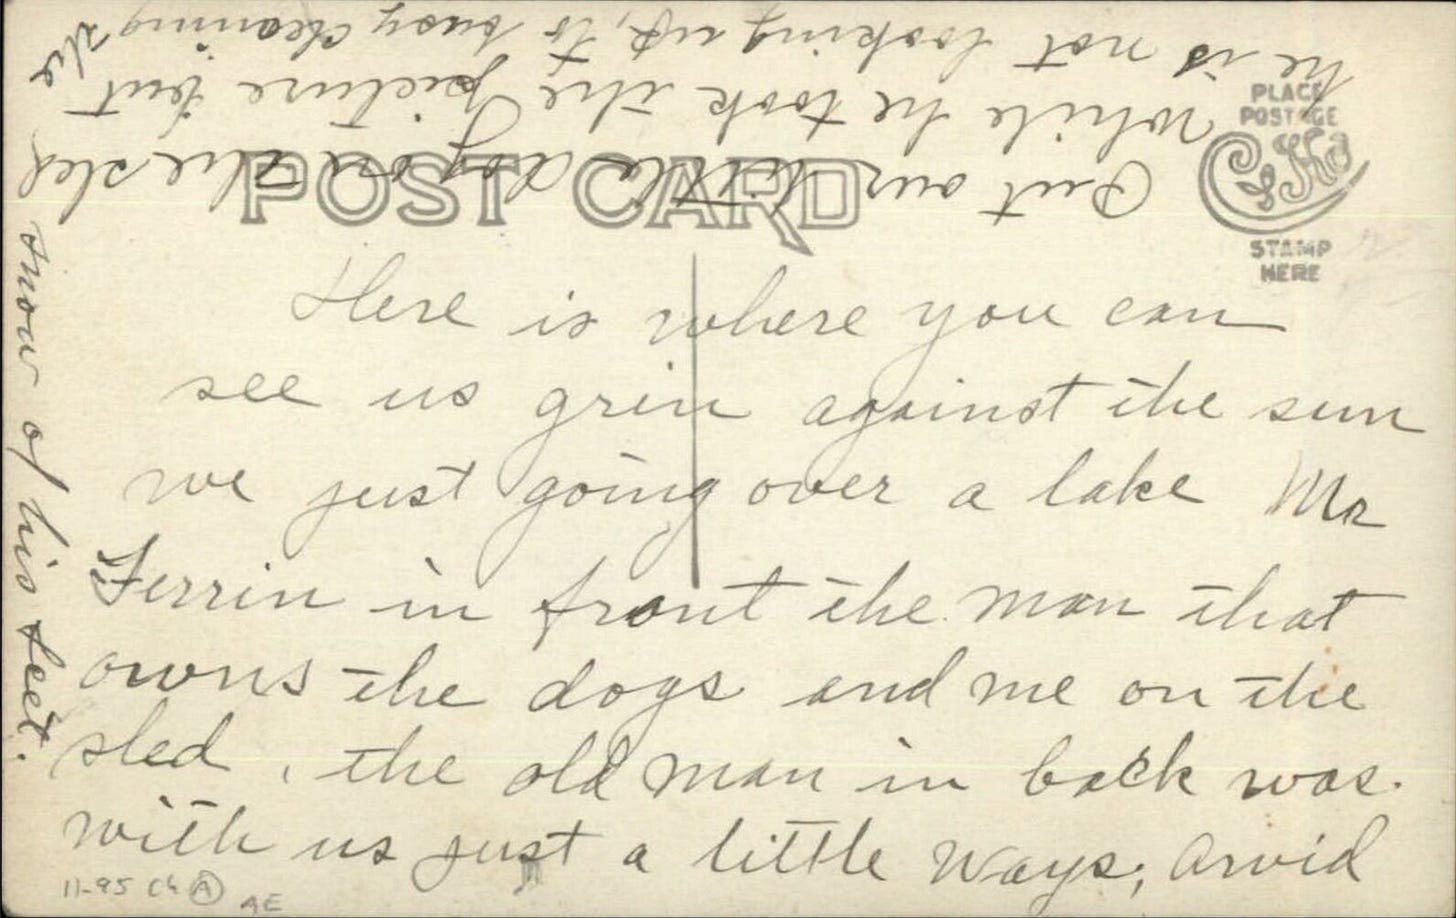 POST CARD
PLACE
POSTAGE
STAMP
HERE
Here is where you can
see us grin against the sun
we just going over a lake Mr
Ferrin in front the man that
owns the dogs and me on the
sled, the old man in back was.
with us just a little ways, Arvid
Put our little dog on the sled
while he took the picture but
he is not looking up, to busy cleaning
the
snow of his feet.
11-95 Ch A AE